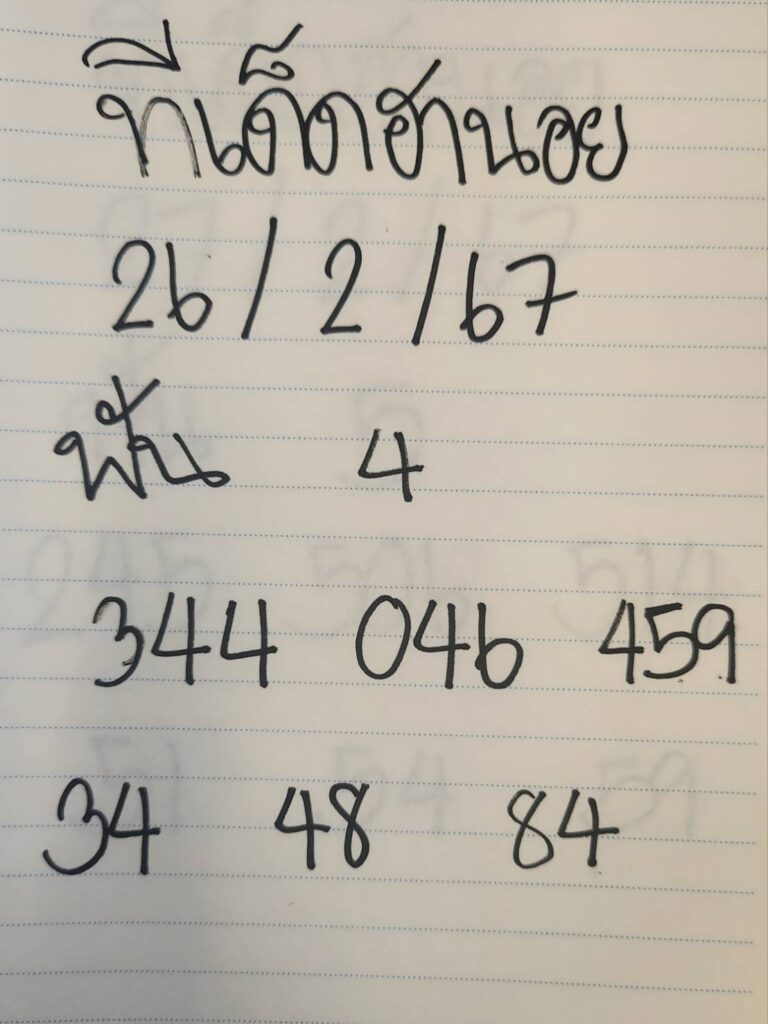 ทีเด็ดฮานอย
26/2/67
ฟัน 4
344 046 459
34 48 84